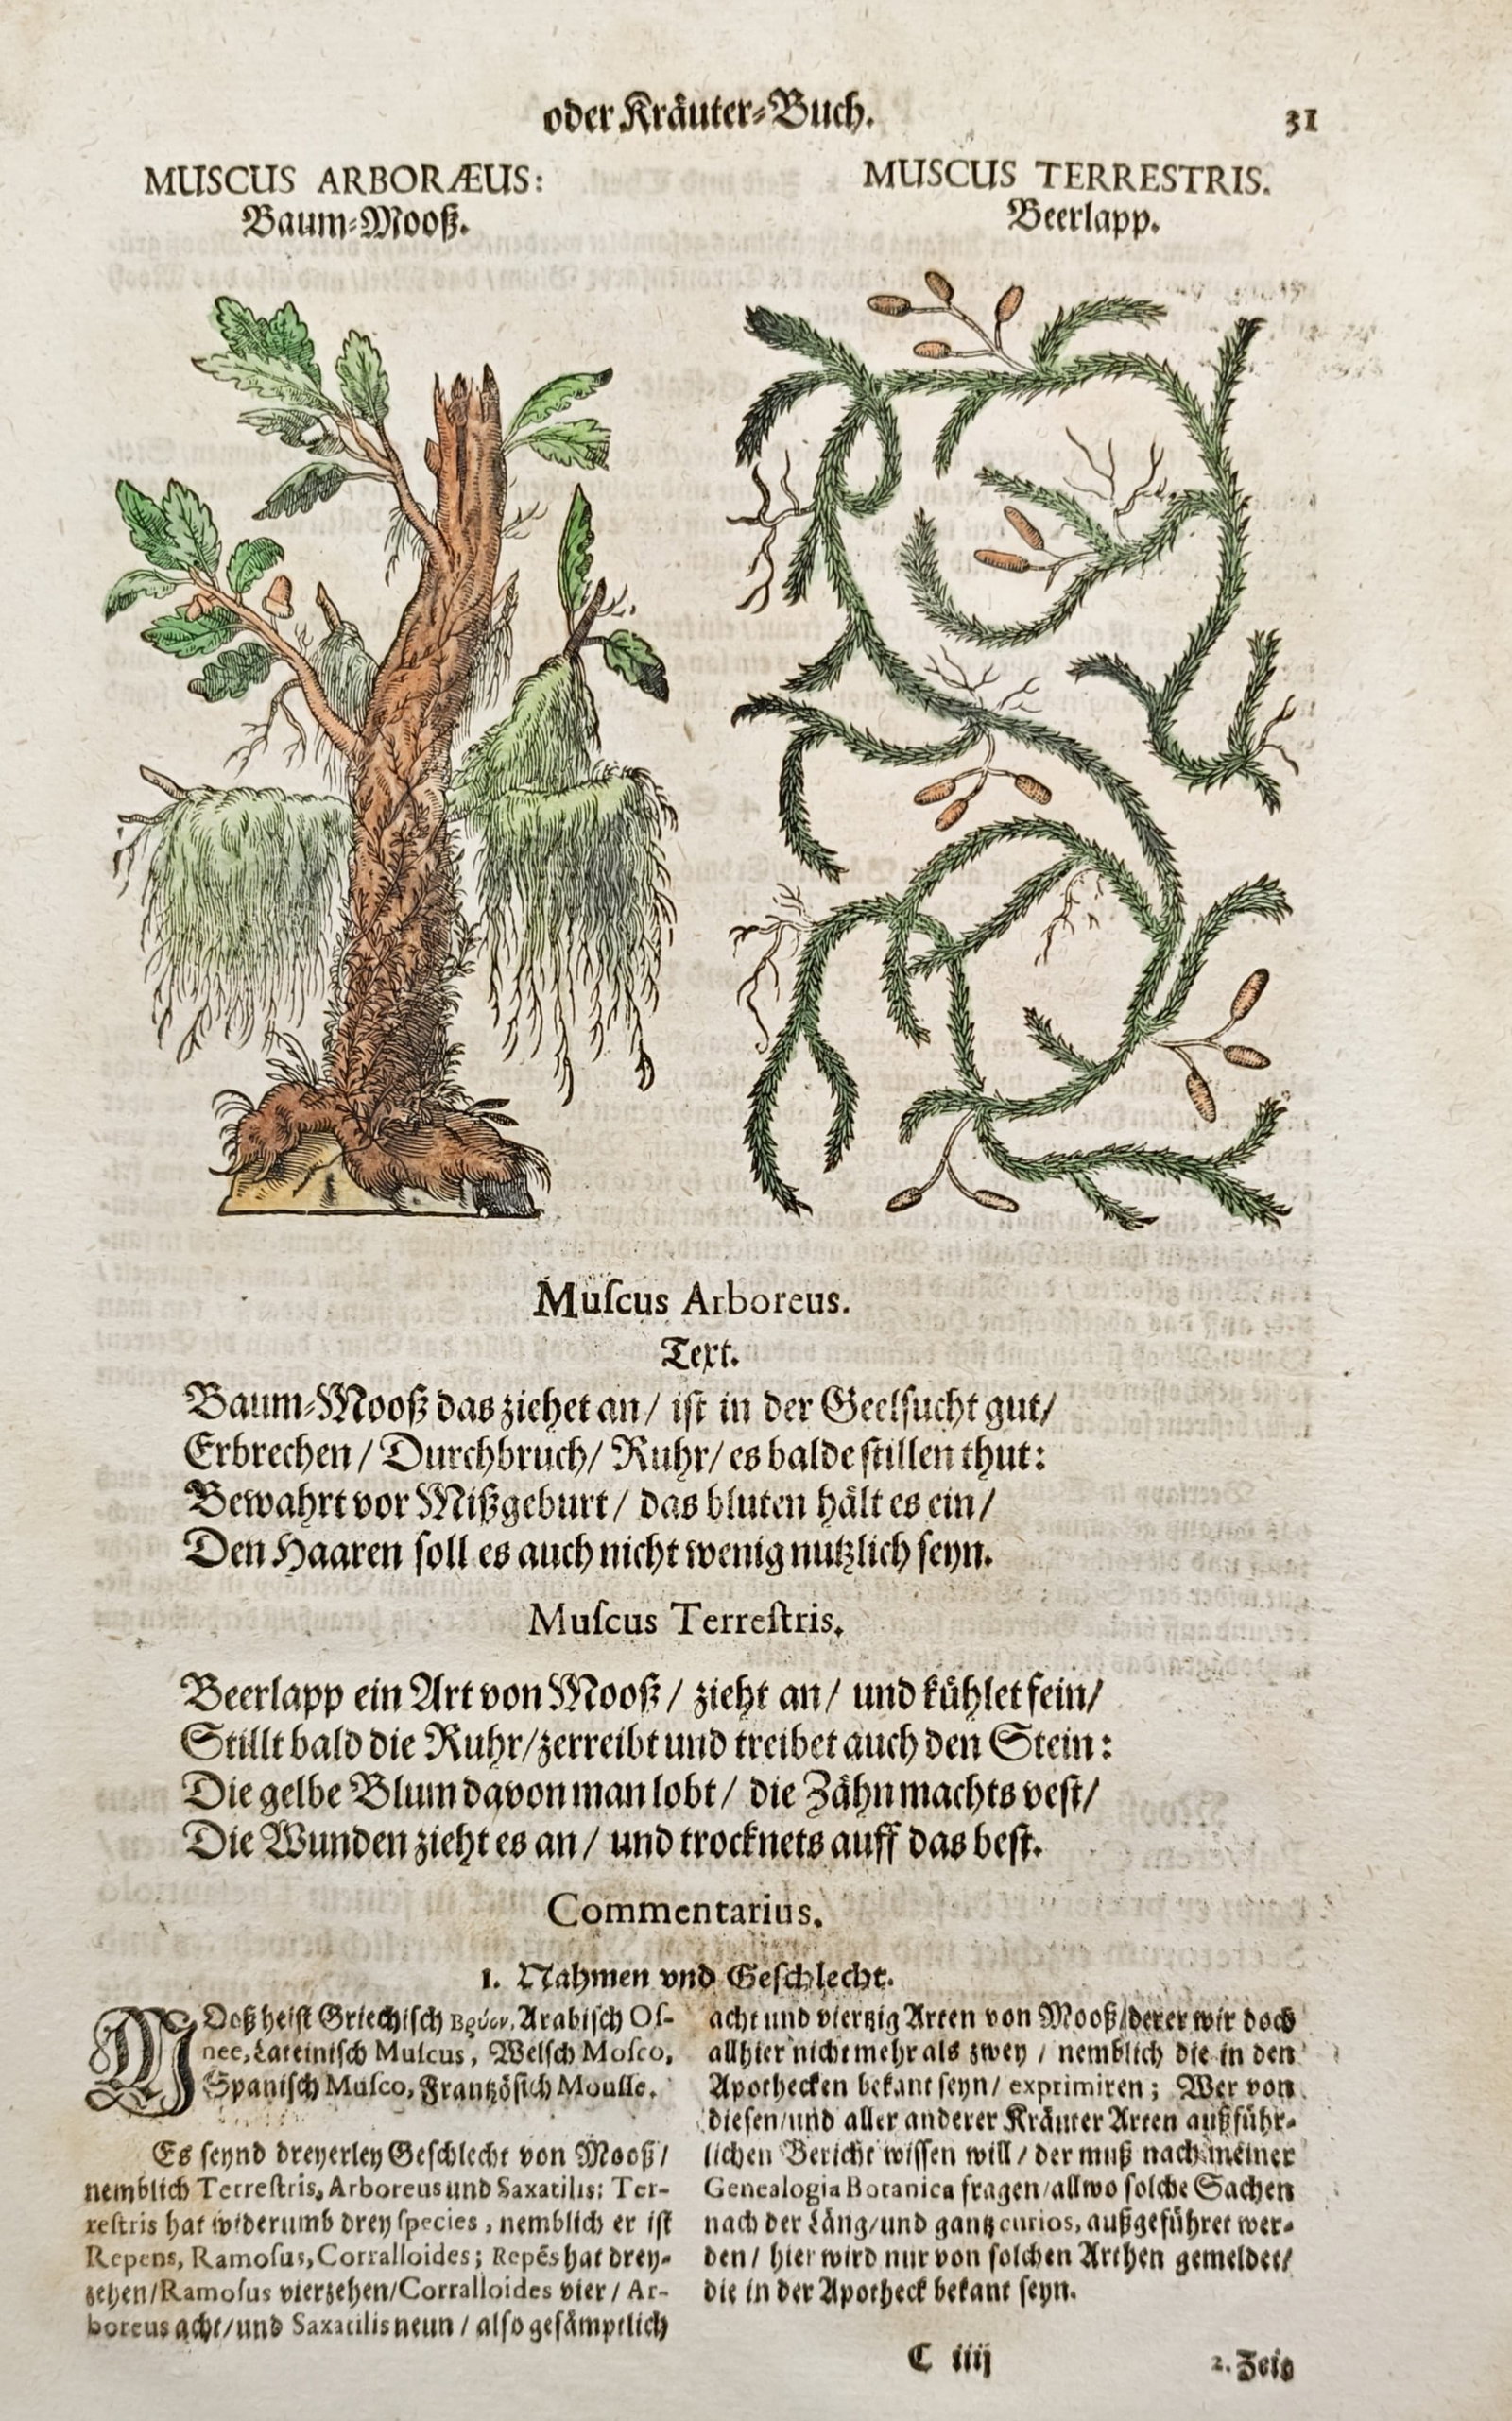 oder Kräuter-Buch.
31
MUSCUS ARBORÆUS:
Baum-Mooß.
MUSCUS TERRESTRIS.
Beerlapp.
Muſcus Arboreus.
Text.
Baum-Mooß das ziehet an / iſt in der Geelſucht gut /
Erbrechen / Durchbruch / Ruhr / es balde ſtillen thut:
Bewahrt vor Mißgeburt / das bluten hält es ein /
Den Haaren ſoll es auch nicht wenig nutzlich ſeyn.
Muſcus Terreſtris.
Beerlapp ein Art von Mooß / zieht an / und kühlet fein /
Stillt bald die Ruhr / zerreibt und treibet auch den Stein:
Die gelbe Blum davon man lobt / die Zähn machts veſt /
Die Wunden zieht es an / und trocknets auff das beſt.
Commentarius.
1. Nahmen vnd Geſchlecht.
MOoß heiſt Griechiſch Βρύον, Arabiſch Oſ-
nee, Lateiniſch Muſcus, Welſch Moſco,
Spaniſch Muſco, Frantzöſiſch Mouſſe.
Es ſeynd dreyerley Geſchlecht von Mooß /
nemblich Terreſtris, Arboreus und Saxatilis: Ter-
reſtris hat widerumb drey ſpecies, nemblich er iſt
Repens, Ramoſus, Corralloides; Repēs hat drey-
zehen / Ramoſus vierzehen / Corralloides vier / Ar-
boreus acht / und Saxatilis neun / alſo geſämptlich
acht und viertzig Arten von Mooß / derer wir doch
allhier nicht mehr als zwey / nemblich die in den
Apothecken bekant ſeyn / exprimiren; Wer von
dieſen / und aller anderer Kräuter Arten außführ-
lichen Bericht wiſſen will / der muß nach meiner
Genealogia Botanica fragen / allwo ſolche Sachen
nach der Läng / und gantz curios, außgeführet wer-
den / hier wird nur von ſolchen Arthen gemeldet /
die in der Apotheck bekant ſeyn.
C iiij
2. Zeis